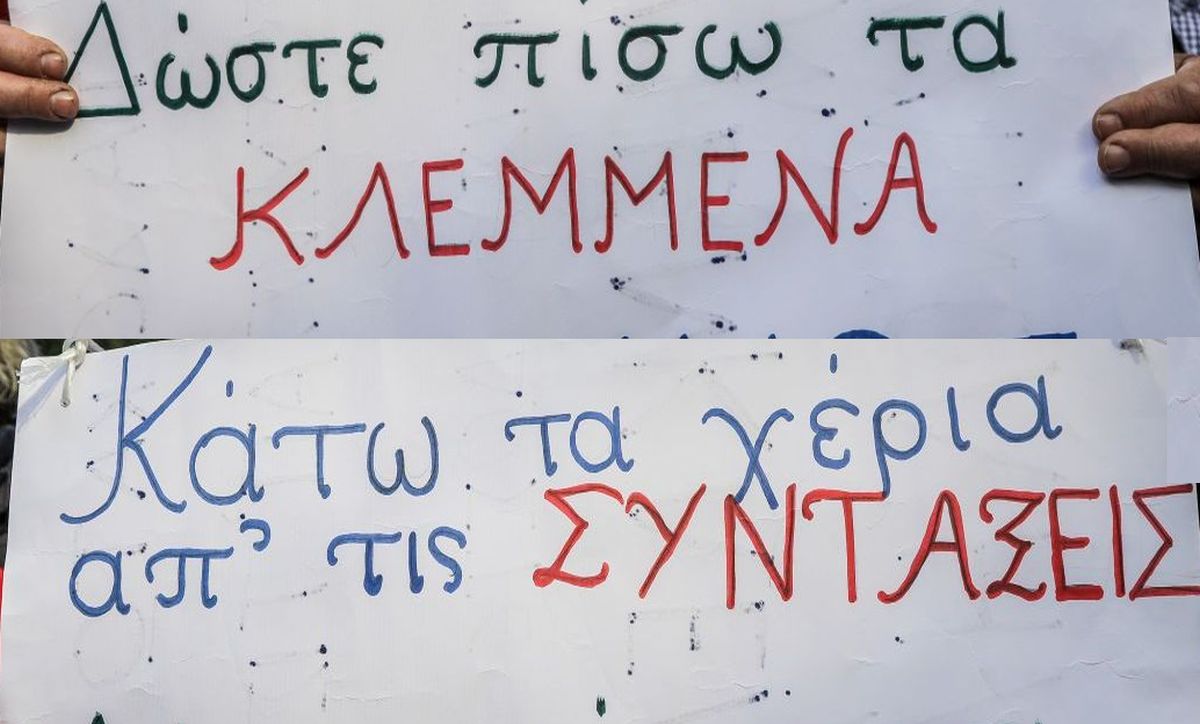 Δώστε πίσω τα
ΚΛΕΜΜΕΝΑ
Κάτω τα χέρια
απ' τις ΣΥΝΤΑΞΕΙΣ